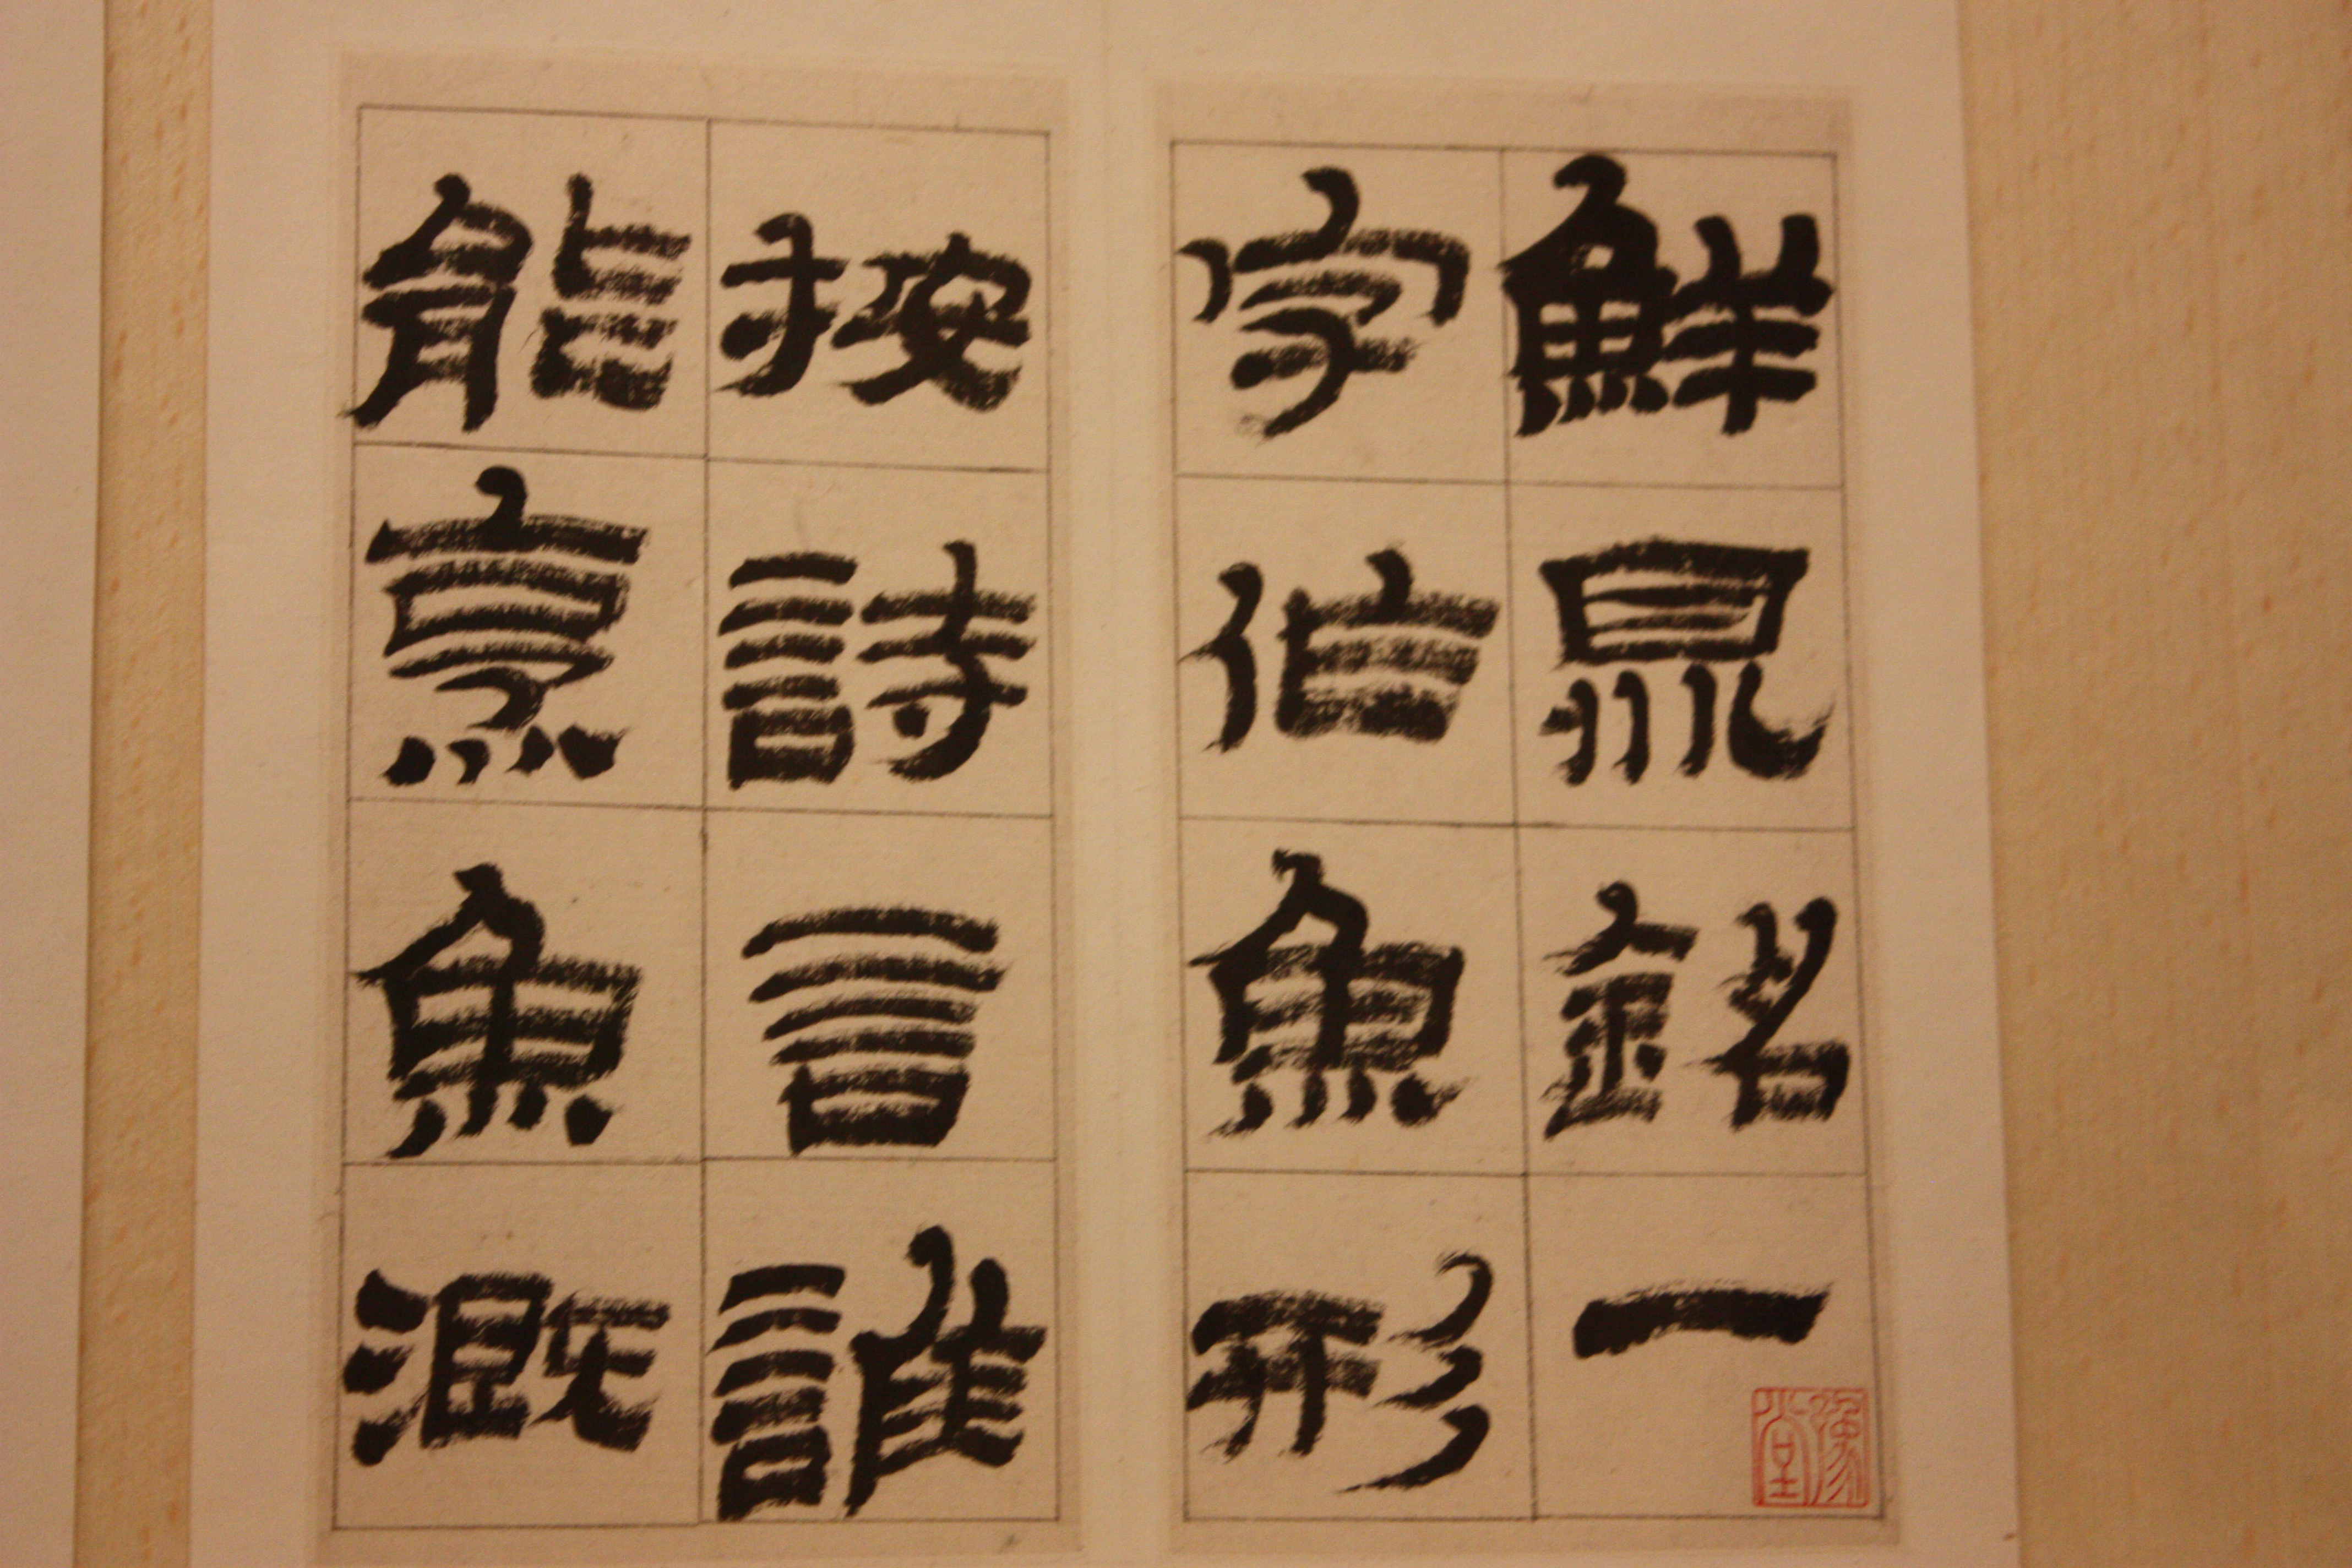 鮮鼎銘一
字作魚形
按詩言誰
能烹魚溉
豫堂